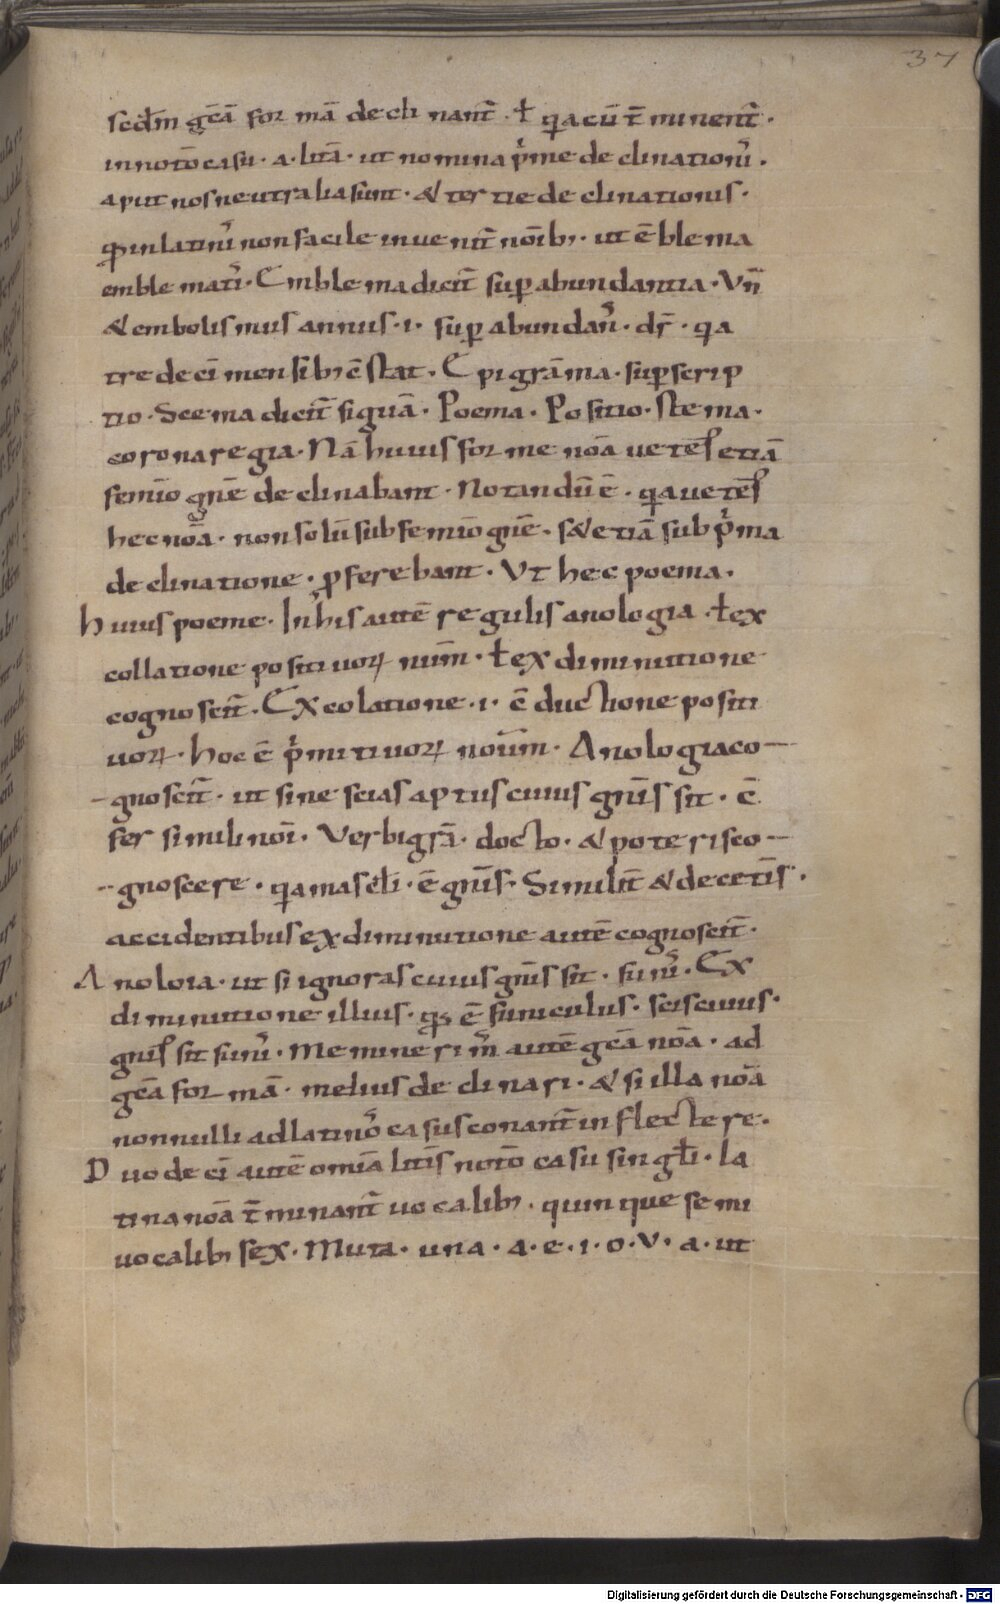 37
scdm̄ gcā for mā decli nant̄ · ł q̄a cū t̄ minent̄ ·
innotō casu · a · lītā · ut nomina p̄me declinationī ·
aput nos neutralia sunt · & tertie declinationis ·
q̄ inlatinī non facile inuenit̄ noīb; · ut ēblema
emble matī · Emblema dicit̄ sup̄abundantia · Vn̄
& embolismus annus · i · sup̄ abundan̄s · dr̄ · q̄a
tredecī mensib; c̄stat · Epigrāma · sup̄scrip
tio · Scema dicit̄ figurā · Poema · Positio · stema ·
corona regia · Nā huius forme noā uetēs etiā
femīo gn̄e declinabant · Notandū ē · q̄a uetēs
hec noā · non solū sub femīo gn̄e · s& etiā sub p̄ma
declinatione · p̄ferebant · Vt hec poema ·
huius poeme · In his autē regulis anologia · ł ex
collatione positiuoꝝ num̄ · ł ex diminutione
cognoscit̄ · Ex colatione · i · c̄ ductione positi
uoꝝ · hoc ē p̄mitiuoꝝ noum̄ · Anologia co-
-gnoscit̄ · ut si nescias aptus cuius gn̄is sit · c̄
fer simili noī · Verbi grā · docto · & poteris co-
-gnoscere · q̄a masclī · ē gn̄is · Similit̄ & decetīs ·
accidentibus ex diminutione autē cognoscit̄ ·
Anoloia · ut si ignoras cuius gn̄is sit · funī · Ex
diminutione illius · q̄s ē funiculus · scis cuius ·
gn̄is sit funī · Meminerim̄ autē gcā noā · ad
gcā formā · melius declinari · & si illa noā
nonnulli ad latinō casus conant̄ inflectere ·
Duodecī autē omīa lītīs notō casu singłi · la
tina noā t̄minant̄ uocalib; · quinque semi
uocalib; sex · Muta · una · a · e · i · o · V · a · ut
Digitalisierung gefördert durch die Deutsche Forschungsgemeinschaft - DFG